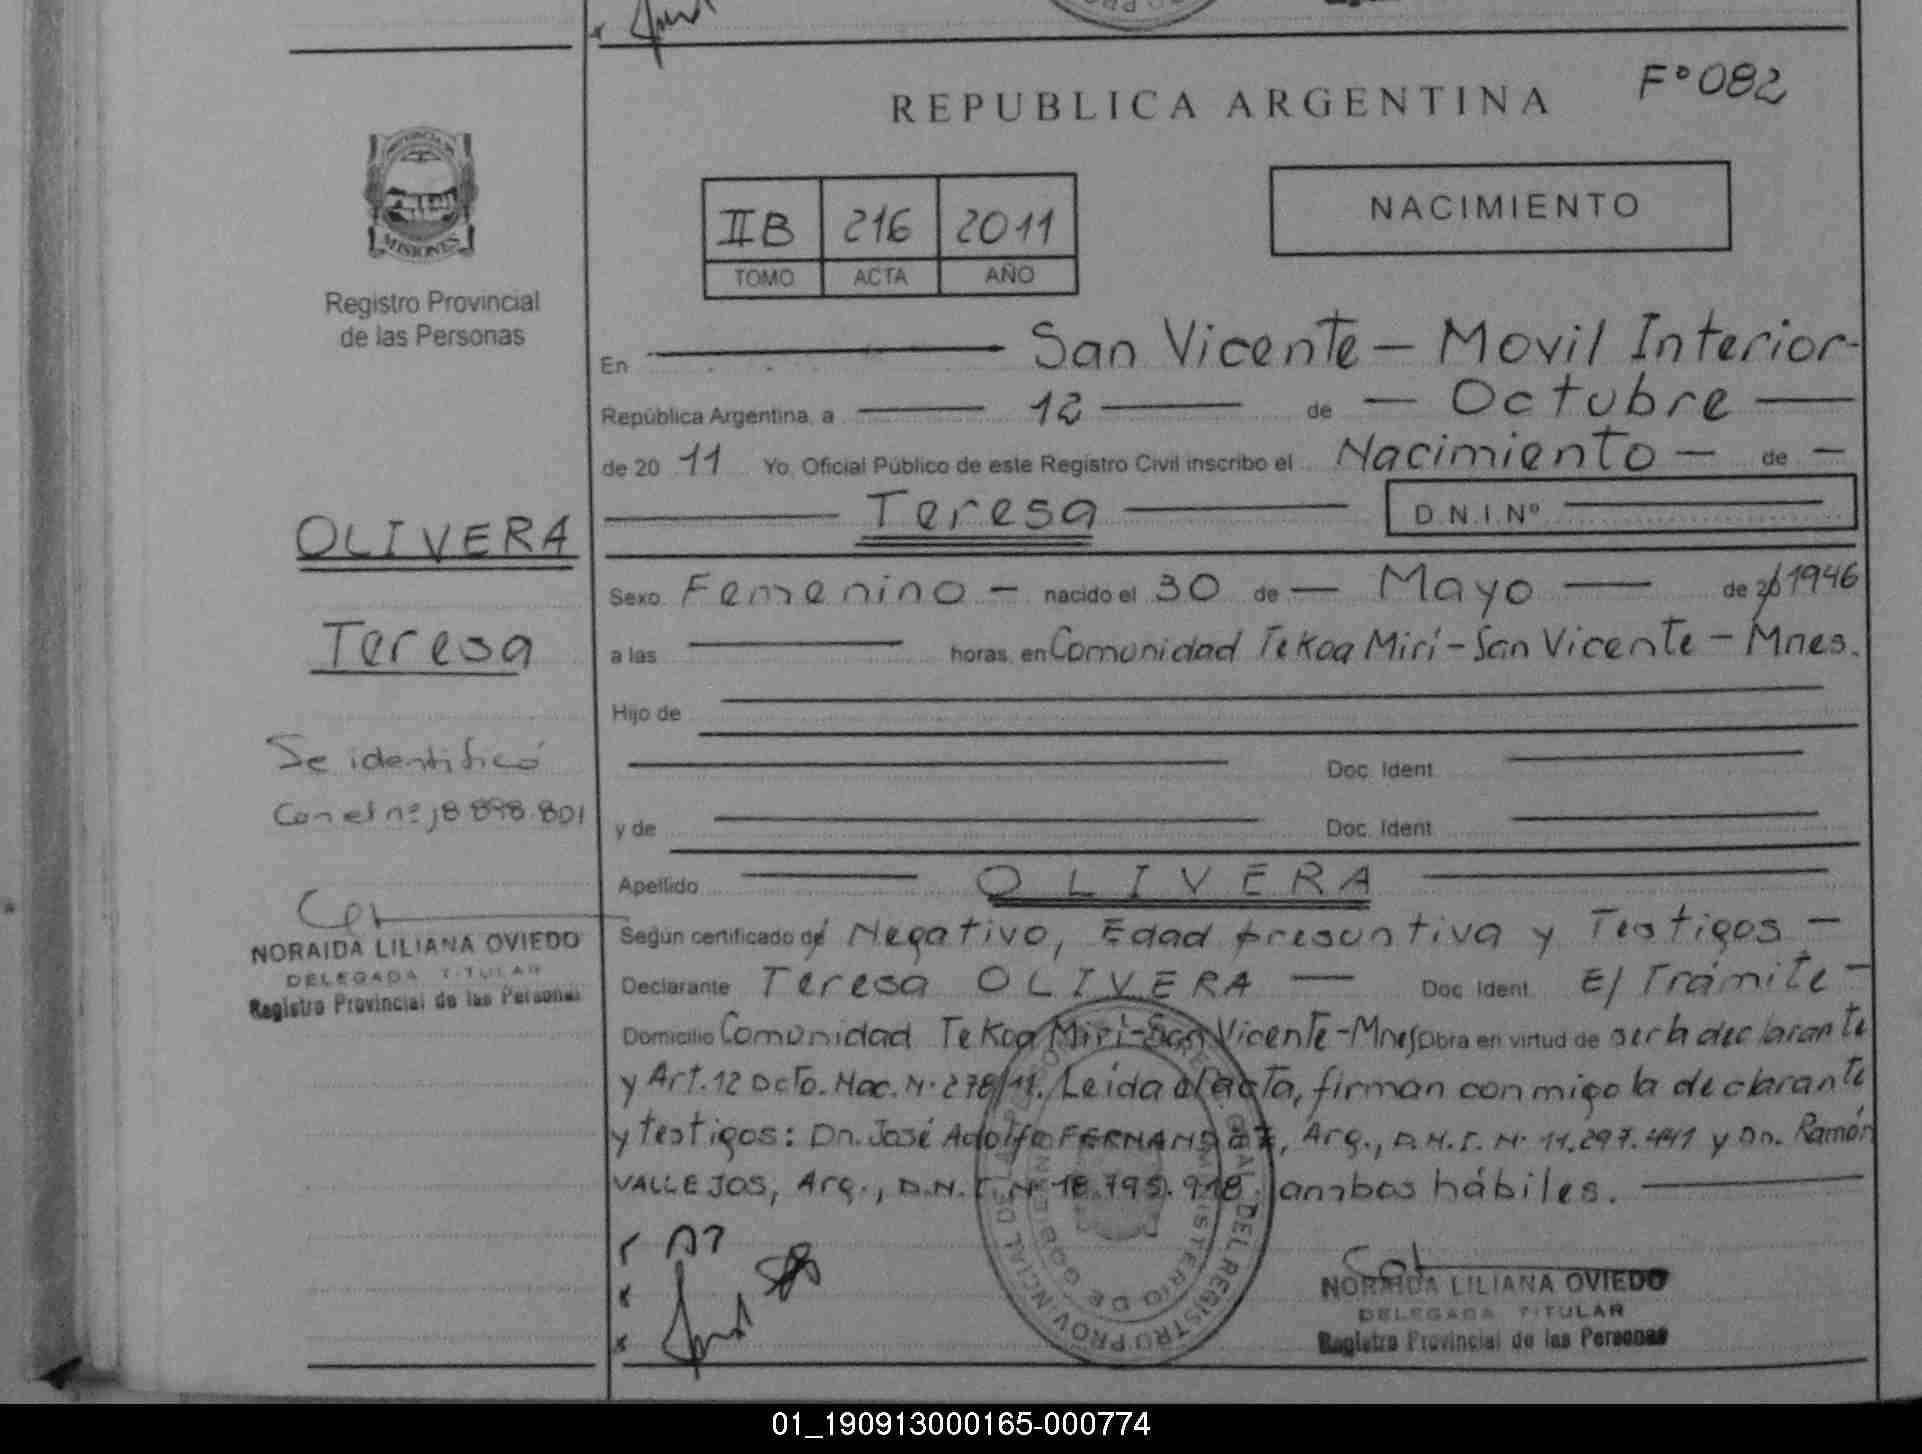 F° 082
REPUBLICA ARGENTINA
NACIMIENTO
IIB 216 2011
TOMO ACTA AÑO
MISIONES
Registro Provincial
de las Personas
En San Vicente - Movil Interior-
República Argentina, a 12 de - Octubre
de 20 11 Yo, Oficial Público de este Registro Civil inscribo el Nacimiento - de -
Teresa D.N.I.Nº
OLIVERA
Teresa
Se identificó
Con el nº 18 898.801
NORAIDA LILIANA OVIEDO
DELEGADA TITULAR
Registro Provincial de las Personas
Sexo Femenino - nacido el 30 de - Mayo - de 20 1946
a las horas, en Comunidad Tekoa Mirí - San Vicente - Mnes.
Hijo de
Doc. Ident.
y de Doc. Ident.
Apellido OLIVERA
Según certificado de Negativo, Edad presuntiva y Testigos -
Declarante Teresa OLIVERA - Doc. Ident. E/ Trámite -
Domicilio Comunidad Tekoa Mirí - San Vicente - Mnes Obra en virtud de ser la declarante
y Art. 12 Dcto. Nac. N° 278/11. Leída el acta, firman conmigo la declarante
y testigos: Dn. José Adolfo FERNANDEZ, Arg., D.N.I. N° 11.297.441 y Dn. Ramón
VALLEJOS, Arg., D.N.I. N° 18.795.918, ambos hábiles.
REGISTRO PROVINCIAL DE LAS
MINISTERIO DE GOBIERNO
NORAIDA LILIANA OVIEDO
DELEGADA TITULAR
Registro Provincial de las Personas
01_190913000165-000774